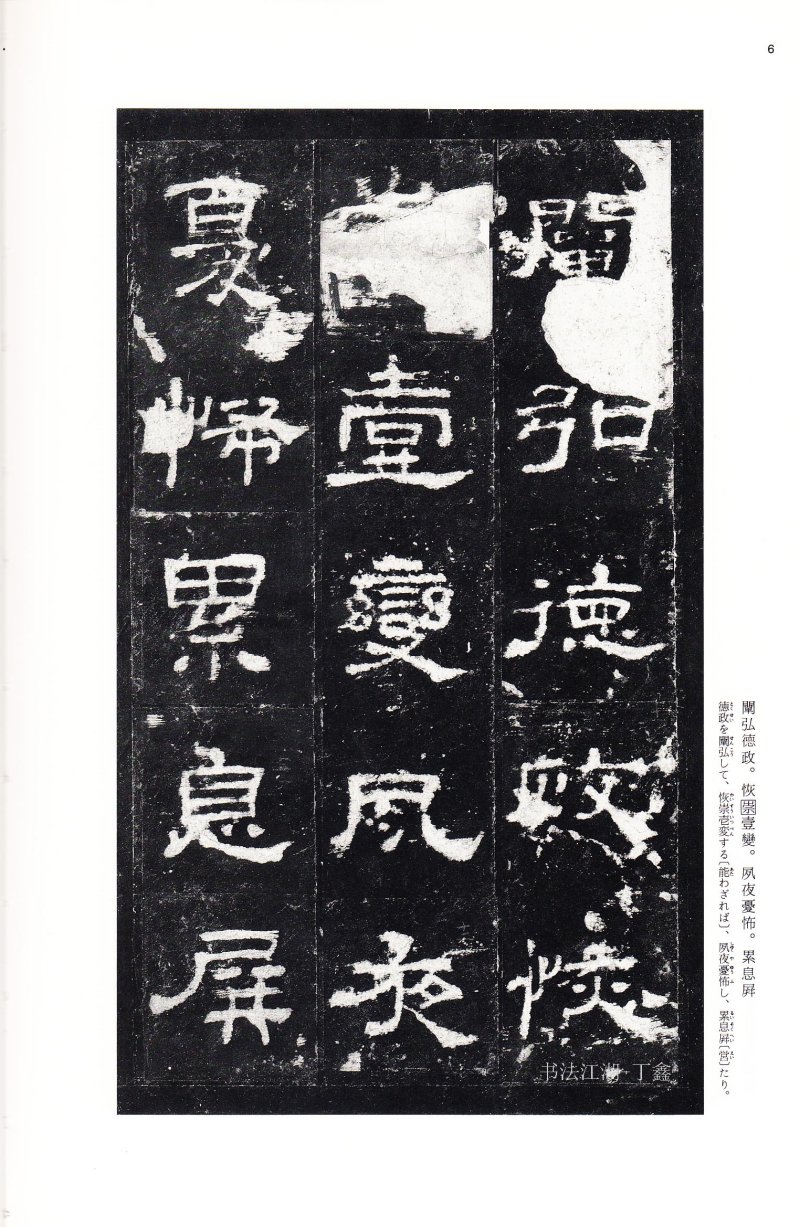 6
闡弘德政恢
崇壹變夙夜
憂怖累息屛
闡弘德政。恢崇壹變。夙夜憂怖。累息屛
德政を闡弘して、恢崇壱変する〔能わざれば〕、夙夜憂怖し、累息屛〔営〕たり。
书法江湖 丁鑫